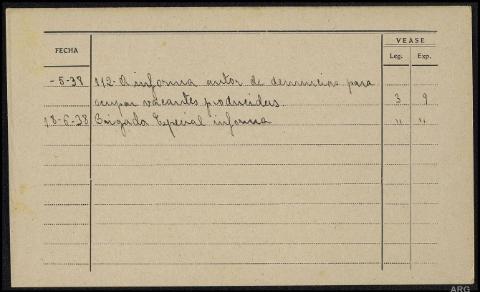 VEASE
FECHA
Leg. Exp.
-5-38 112-A informa autor de denuncias para
ocupar vacantes producidas. 3 9
18-6-38 Brigada Especial informa " "
ARG